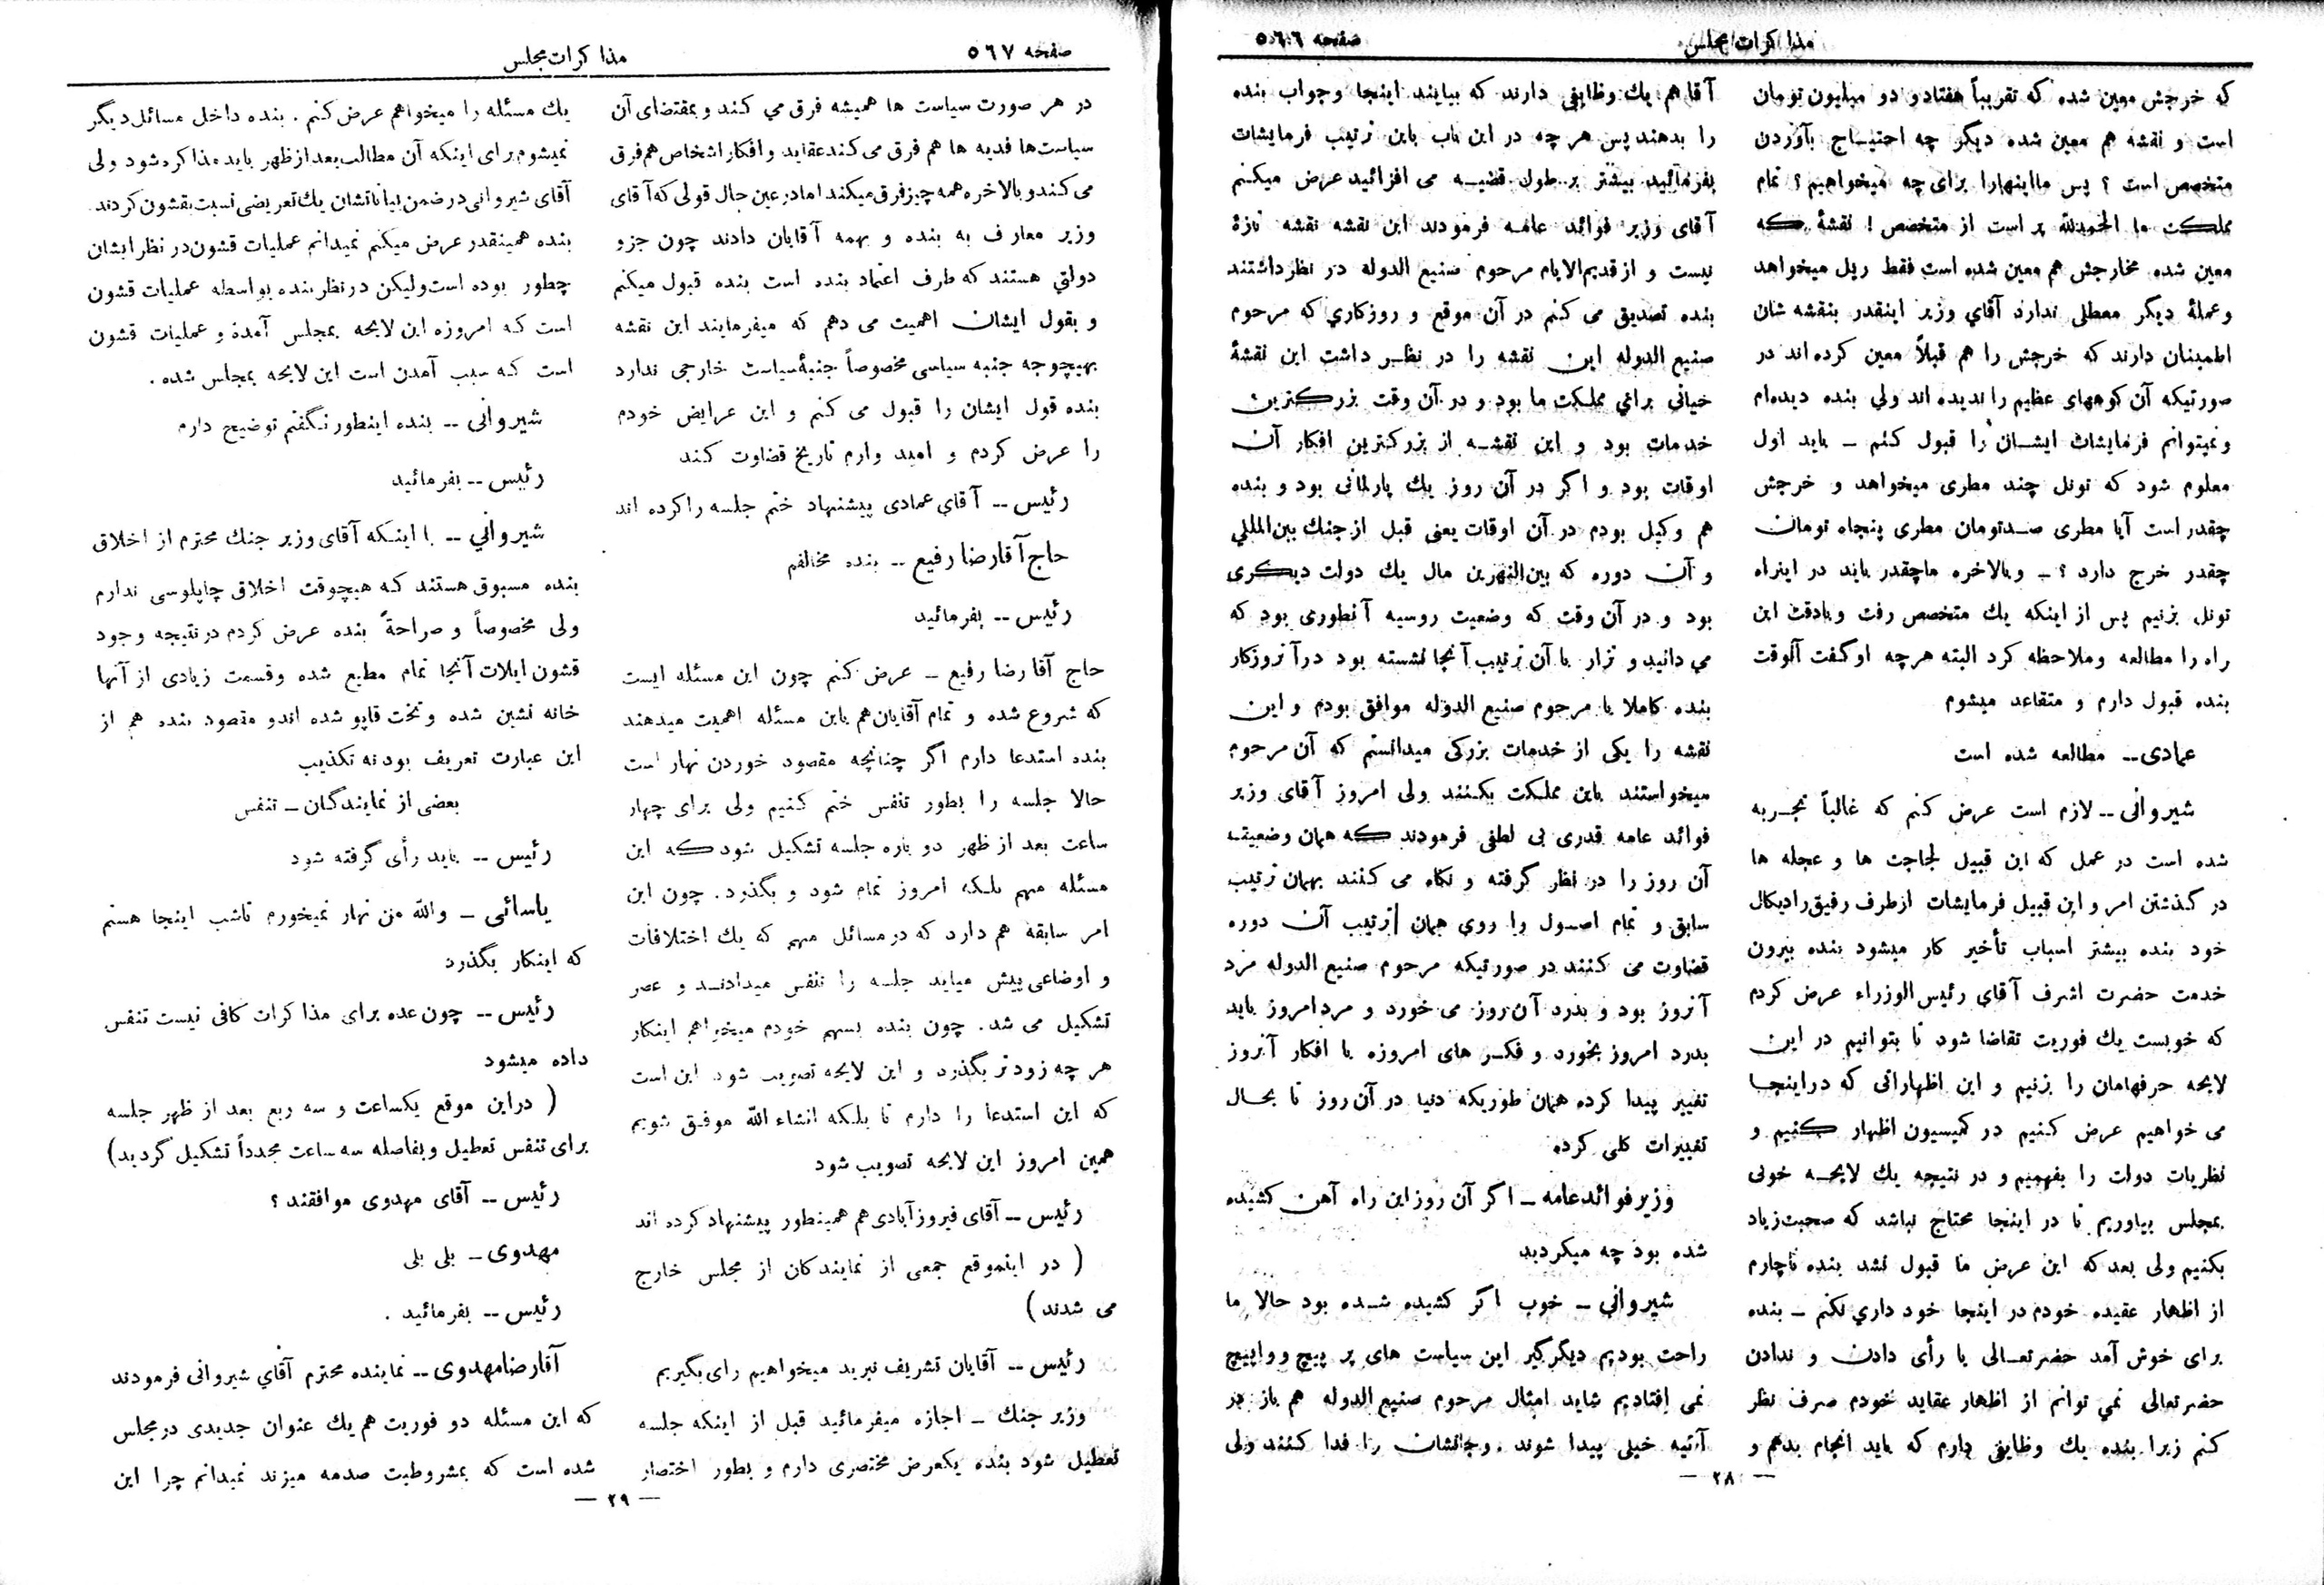 مذاکرات مجلس
صفحه ۵۶۶
که خرجش معین شده که تقریباً هفتاد و دو میلیون تومان
است و نقشه هم معین شده دیگر چه احتیـاج بآوردن
متخصص است ؟ پس ما اینهارا برای چه میخواهیم ؟ تمام
مملکت ما الحمدلله پر است از متخصص ! نقشهٔ که
معین شده مخارجش هم معین شده است فقط ریل میخواهد
وعملهٔ دیگر معطلی ندارد آقای وزیر اینقدر بنقشه شان
اطمینان دارند که خرجش را هم قبلاً معین کرده اند در
صورتیکه آن کوههای عظیم را ندیده اند ولی بنده دیده‌ام
ونمیتوانم فرمایشات ایشـان را قبول کنم ـ باید اول
معلوم شود که تونل چند مطری میخواهد و خرجش
چقدر است آیا مطری صـدتومان مطری پنجاه تومان
چقدر خرج دارد ؟ ـ وبالاخره ماچقدر باید در اینراه
تونل بزنیم پس از اینکه یك متخصص رفت وبادقت این
راه را مطالعه وملاحظه کرد البته هرچه او گفت آنوقت
بنده قبول دارم و متقاعد میشوم
عمادی ـ مطالعه شده است
شیروانی ـ لازم است عرض کنم که غالباً تجـربه
شده است در عمل که این قبیل لجاجت ها و عجله ها
در گذشتن امر و این قبیل فرمایشات ازطرف رفیق رادیکال
خود بنده بیشتر اسباب تأخیر کار میشود بنده بیرون
خدمت حضرت اشرف آقای رئیس الوزراء عرض کردم
که خوبست یك فوریت تقاضا شود تا بتوانیم در این
لایحه حرفهامان را بزنیم و این اظهاراتی که دراینجـا
می خواهیم عرض کـنیم در کمیسیون اظهار کنیم و
نظریات دولت را بفهمیم و در نتیجه یك لایحـه خوبی
بمجلس بیاوریم تا در اینجا محتاج نباشد که صحبت زیاد
بکنیم ولی بعد که این عرض ما قبول نشد بنده ناچارم
از اظهار عقیده خودم در اینجا خود داری نکنم ـ بنده
برای خوش آمد حضرتعـالی یا رأی دادن و ندادن
حضرتعالی نمی توانم از اظهار عقاید خودم صرف نظر
کنم زیرا بنده یك وظایفی دارم که باید انجام بدهم و
آقا هم یك وظایفی دارند که بیایند اینجا وجواب بنده
را بدهند پس هر چه در این باب باین ترتیب فرمایشات
بفرمائید بیشتر بر طول قضیـه می افزائید عرض میکنم
آقای وزیر فوائد عامه فرمودند این نقشه نقشه تازهٔ
نیست و از قدیم الایام مرحوم صنیع الدوله در نظر داشتند
بنده تصدیق می کنم در آن موقع و روزکاری که مرحوم
صنیع الدوله این نقشه را در نظـر داشت این نقشهٔ
حیاتی برای مملکت ما بود و در آن وقت بزرگترین
خدمات بود و این نقشـه از بزرگترین افکار آن
اوقات بود و اگر در آن روز یك پارلمانی بود و بنده
هم وکیل بودم در آن اوقات یعنی قبل از جنك بین المللی
و آن دوره که بین النهرین مال یك دولت دیگری
بود و در آن وقت که وضعیت روسیه آنطوری بود که
می دانید و تزار با آن ترتیب آنجا نشسته بود درآنروزکار
بنده کاملا با مرحوم صنیع الدوله موافق بودم و این
نقشه را یکی از خدمات بزرکی میدانستم که آن مرحوم
میخواستند باین مملکت بکـنند ولی امروز آقای وزیر
فوائد عامه قدری بی لطفی فرمودند که همان وضعیتـه
آن روز را در نظر گرفته و نکاه می کنند بهمان ترتیب
سابق و تمام اصـول را روی همان ترتیب آن دوره
قضاوت می کنند در صورتیکه مرحوم صنیع الدوله مرد
آنروز بود و بدرد آن روز می خورد و مرد امروز باید
بدرد امروز بخورد و فکـر های امروزه با افکار آنروز
تغییر پیدا کرده همان طوریکه دنیا در آن روز تا بحـال
تغییرات کلی کرده
وزیر فوائد عامه ـ اگر آن روز این راه آهن کشیده
شده بود چه میکردید
شیروانی ـ خوب اگر کشیده شـده بود حالا ما
راحت بودیم دیگر گیر این سیاست های پر پیچ و واپیچ
نمی افتادیم شاید امثال مرحوم صنیع الدوله هم باز در
آتیه خیلی پیدا شوند . وجانشان را فدا کنند ولی
— ۲۸ —
صفحه ۵۶۷
مذاکرات مجلس
در هر صورت سیاست ها همیشه فرق می کند و بمقتضای آن
سیاست‌ها فدیه ها هم فرق می کند عقاید و افکار اشخاص هم فرق
می کند و بالاخره همه چیز فرق میکند اما در عین حال قولی که آقای
وزیر معارف به بنده و بهمه آقایان دادند چون جزو
دولتی هستند که طرف اعتماد بنده است بنده قبول میکنم
و بقول ایشان اهمیت می دهم که میفرمایند این نقشه
بهیچوجه جنبه سیاسی مخصوصاً جنبهٔ سیاست خارجی ندارد
بنده قول ایشان را قبول می کنم و این عرایض خودم
را عرض کردم و امید وارم تاریخ قضاوت کند
رئیس ـ آقای عمادی پیشنهاد ختم جلسه را کرده اند
حاج آقا رضا رفیع ـ بنده مخالفم
رئیس ـ بفرمائید
حاج آقا رضا رفیع ـ عرض کنم چون این مسئله ایست
که شروع شده و تمام آقایان هم باین مسئله اهمیت میدهند
بنده استدعا دارم اگر چنانچه مقصود خوردن نهار است
حالا جلسه را بطور تنفس ختم کنیم ولی برای چهار
ساعت بعد از ظهر دو باره جلسه تشکیل شود که این
مسئله مهم بلکه امروز تمام شود و بگذرد . چون این
امر سابقه هم دارد که در مسائل مهم که یك اختلافات
و اوضاعی پیش میاید جلسه را تنفس میدادنـد و عصر
تشکیل می شد . چون بنده بسهم خودم میخواهم اینکار
هر چه زودتر بگذرد و این لایحه تصویب شود این است
که این استدعا را دارم تا بلکه انشاء الله موفـق شویم
همین امروز این لایحه تصویب شود
رئیس ـ آقای فیروزآبادی هم همینطور پیشنهاد کرده اند
( در اینموقع جمعی از نمایندکان از مجلس خارج
می شدند )
رئیس ـ آقایان تشریف نبرید میخواهیم رای بگیریم
وزیر جنك ـ اجازه میفرمائید قبل از اینکه جلسه
تعطیل شود بنده یکعرض مختصری دارم و بطور اختصار
یك مسئله را میخواهم عرض کنم . بنده داخل مسائل دیگر
نمیشوم برای اینکه آن مطالب بعد از ظهر باید مذاکره شود ولی
آقای شیروانی در ضمن بیاناتشان یك تعریضی نسبت بقشون کردند
بنده همینقدر عرض میکنم نمیدانم عملیات قشون در نظر ایشان
چطور بوده است ولیکن در نظر بنده بواسطه عملیات قشون
است که امروزه این لایحه بمجلس آمده و عملیات قشون
است که سبب آمدن است این لایحه بمجلس شده .
شیروانی ـ بنده اینطور نگفتم توضیح دارم
رئیس ـ بفرمائید
شیروانی ـ با اینکه آقای وزیر جنك محترم از اخلاق
بنده مسبوق هستند که هیچوقت اخلاق چاپلوسی ندارم
ولی مخصوصاً و صراحةً بنده عرض کردم در نتیجه وجود
قشون ایلات آنجا تمام مطیع شده وقسمت زیادی از آنها
خانه نشین شده و تخت قاپو شده اند و مقصود بنده هم از
این عبارت تعریف بود نه تکذیب
بعضی از نمایندگان ـ تنفس
رئیس ـ باید رأی گرفته شود
یاسائی ـ والله من نهار نمیخورم تاشب اینجا هستم
که اینکار بگذرد
رئیس ـ چون عده برای مذاکرات کافی نیست تنفس
داده میشود
( دراین موقع یکساعت و سه ربع بعد از ظهر جلسه
برای تنفس تعطیل و بفاصله سه ساعت مجدداً تشکیل گردید )
رئیس ـ آقای مهدوی موافقند ؟
مهدوی ـ بلی بلی
رئیس ـ بفرمائید .
آقارضا مهدوی ـ نماینده محترم آقای شیروانی فرمودند
که این مسئله دو فوریت هم یك عنوان جدیدی در مجلس
شده است که بمشروطیت صدمه میزند نمیدانم چرا این
— ۲۹ —